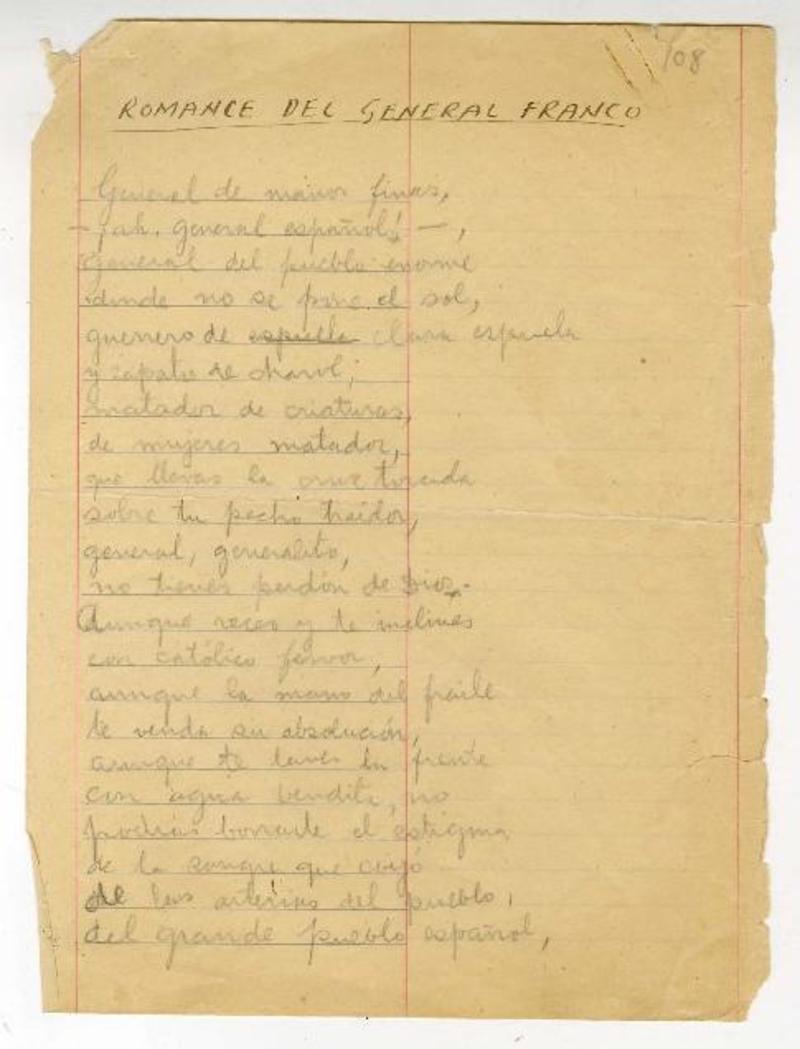 108
ROMANCE DEL GENERAL FRANCO
General de manos finas,
- ¡ah, general español! -,
General del pueblo enorme
donde no se pone el sol,
guerrero de espuela clara espuela
y zapato de charol;
matador de criaturas,
de mujeres matador,
que llevas la cruz torcida
sobre tu pecho traidor,
general, generalito,
no tienes perdón de Dios.
Aunque reces y te inclines
con católico fervor,
aunque la mano del fraile
te venda su absolución,
aunque te laves la frente
con agua bendita, no
podrás borrarte el estigma
de la sangre que cayó
de las arterias del pueblo,
del grande pueblo español,